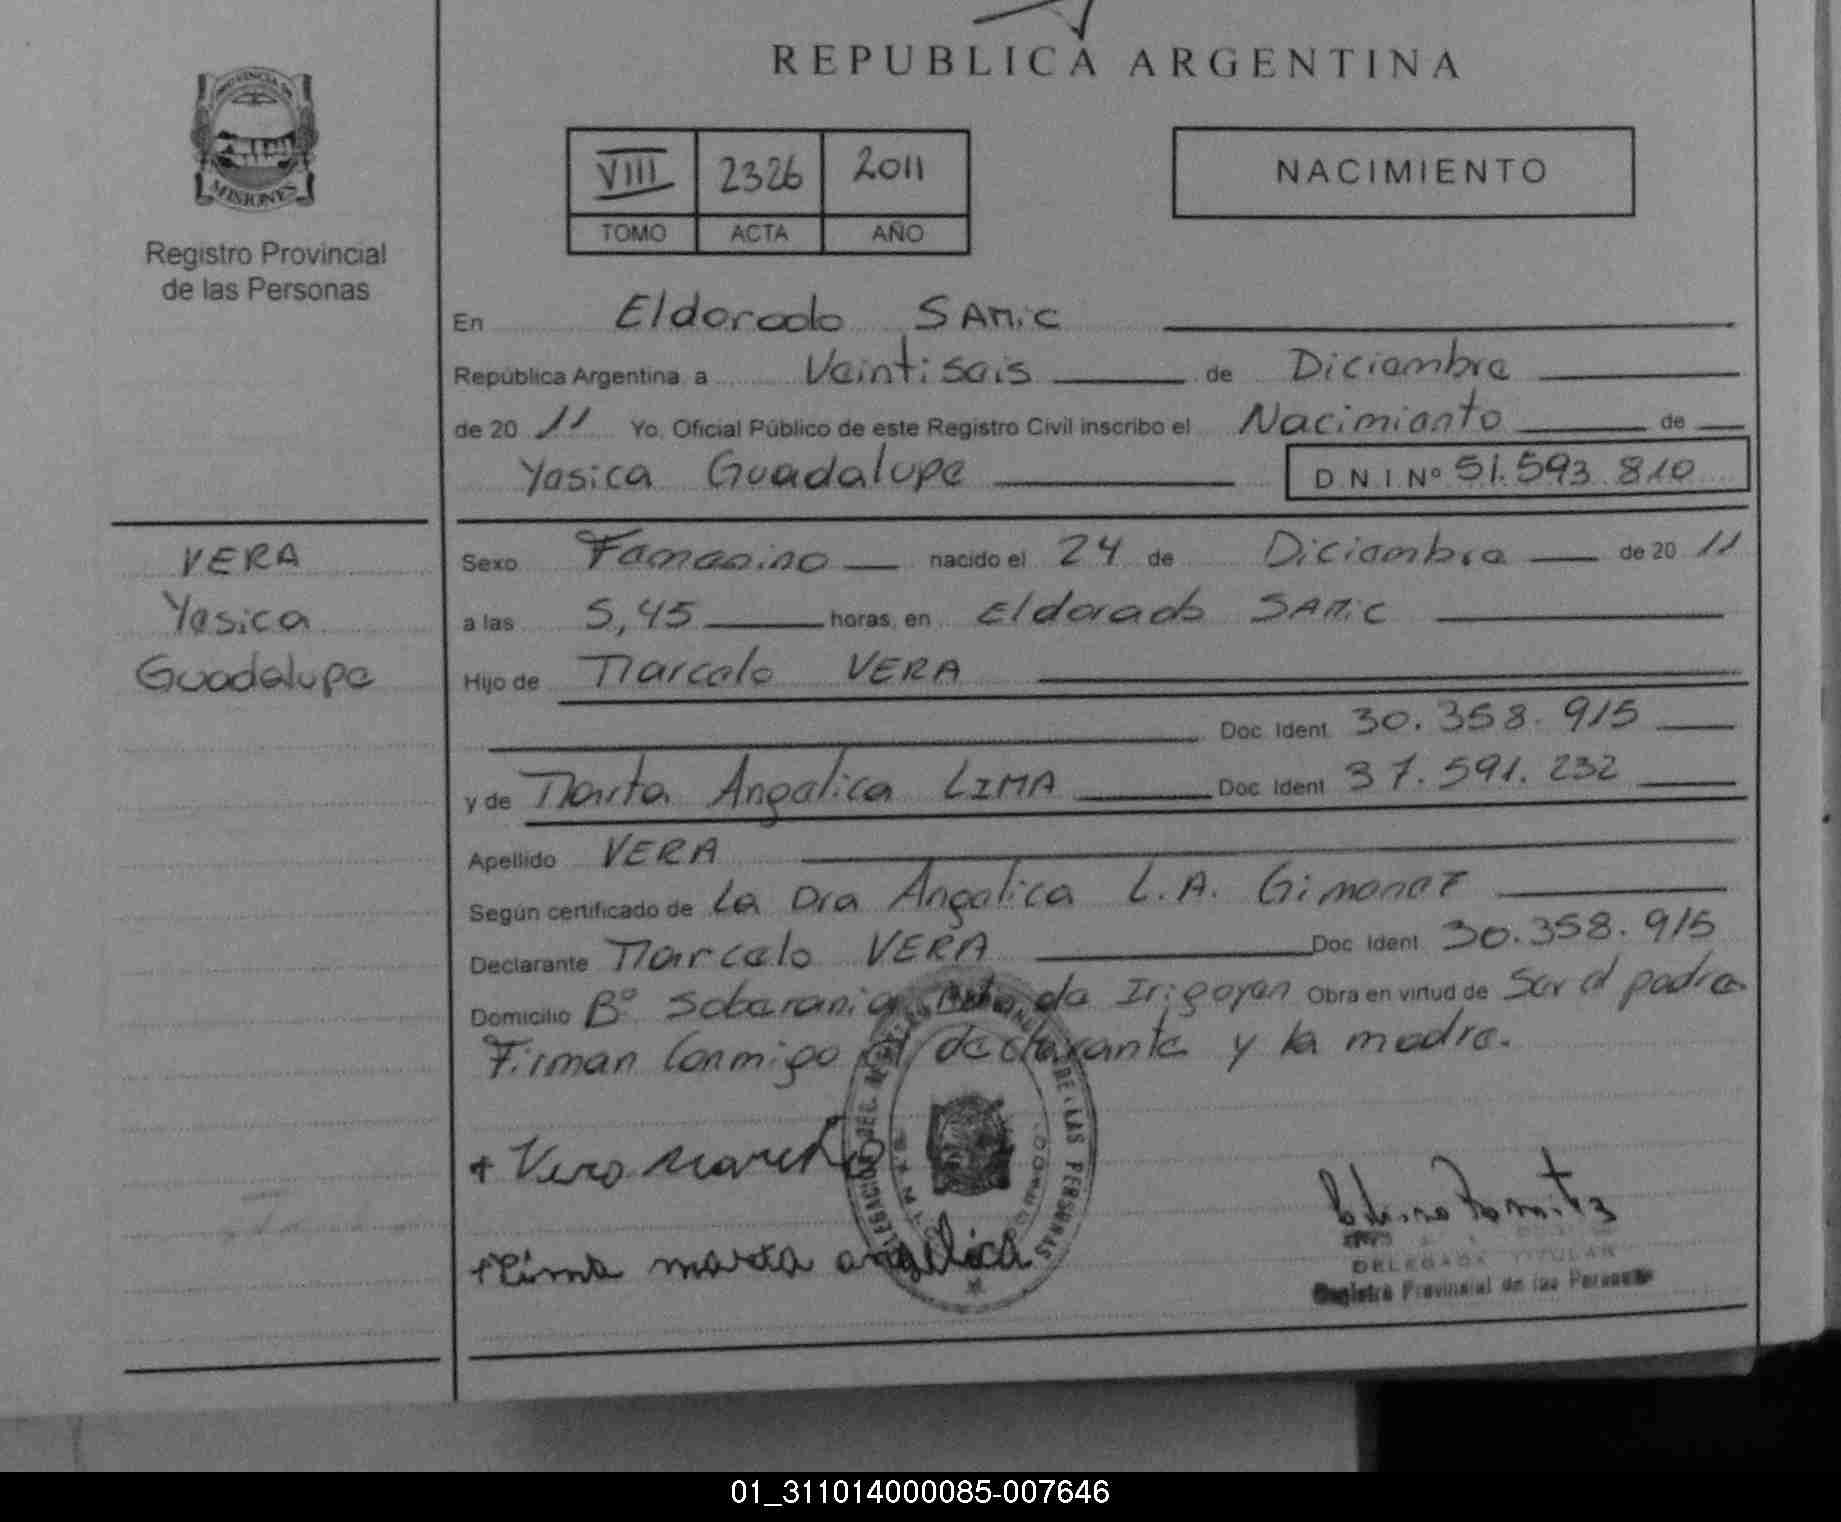 REPUBLICA ARGENTINA
PROVINCIA DE
MISIONES
Registro Provincial
de las Personas
VIII 2326 2011
TOMO ACTA AÑO
NACIMIENTO
En Eldorado SAMic
República Argentina a Veintiseis de Diciembre
de 20 11 Yo, Oficial Público de este Registro Civil inscribo el Nacimiento de
Yesica Guadalupe D N I Nº 51.593.810
VERA
Yesica
Guadalupe
Sexo Femenino nacido el 24 de Diciembre de 20 11
a las 5,45 horas, en Eldorado SAMic
Hijo de Marcelo VERA
Doc. Ident. 30.358.915
y de Marta Angelica LIMA Doc. Ident. 37.591.232
Apellido VERA
Según certificado de La Dra Angelica L.A. Gimenez
Declarante Marcelo VERA Doc. Ident. 30.358.915
Domicilio Bº Soberania de Irigoyen Obra en virtud de Ser el padre
Firman Conmigo el declarante y la madre.
DE LAS PERSONAS
+ Vera Marcelo
+ Lima marta angelica
DELEGADA TITULAR
Registro Provincial de las Personas
01_311014000085-007646